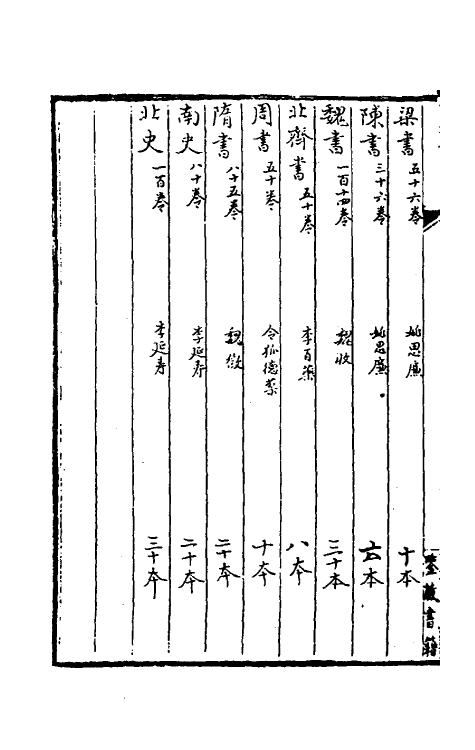 梁書 五十六卷 姚思廉 十本
陳書 三十六卷 姚思廉 六本
魏書 一百十四卷 魏收 三十本
北齊書 五十卷 李百藥 八本
周書 五十卷 令狐德棻 十本
隋書 八十五卷 魏徵 二十本
南史 八十卷 李延寿 二十本
北史 一百卷 李延寿 三十本